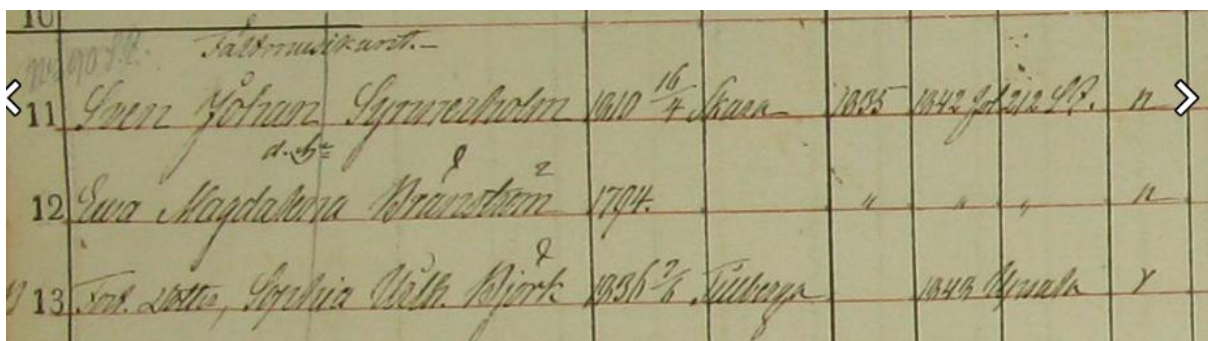 10
No 290 S.P. Fältmusikant.
11 Sven Johan Symmerholm 1810 16/4 Skara 1835 1842 Jol 212 S.P. n
d. hu
12 Ewa Magdalena Brännström 2 1794. " " " n
13 Fost. Dotter, Sophia Björk 1836 Tillberga 1843 Upsala